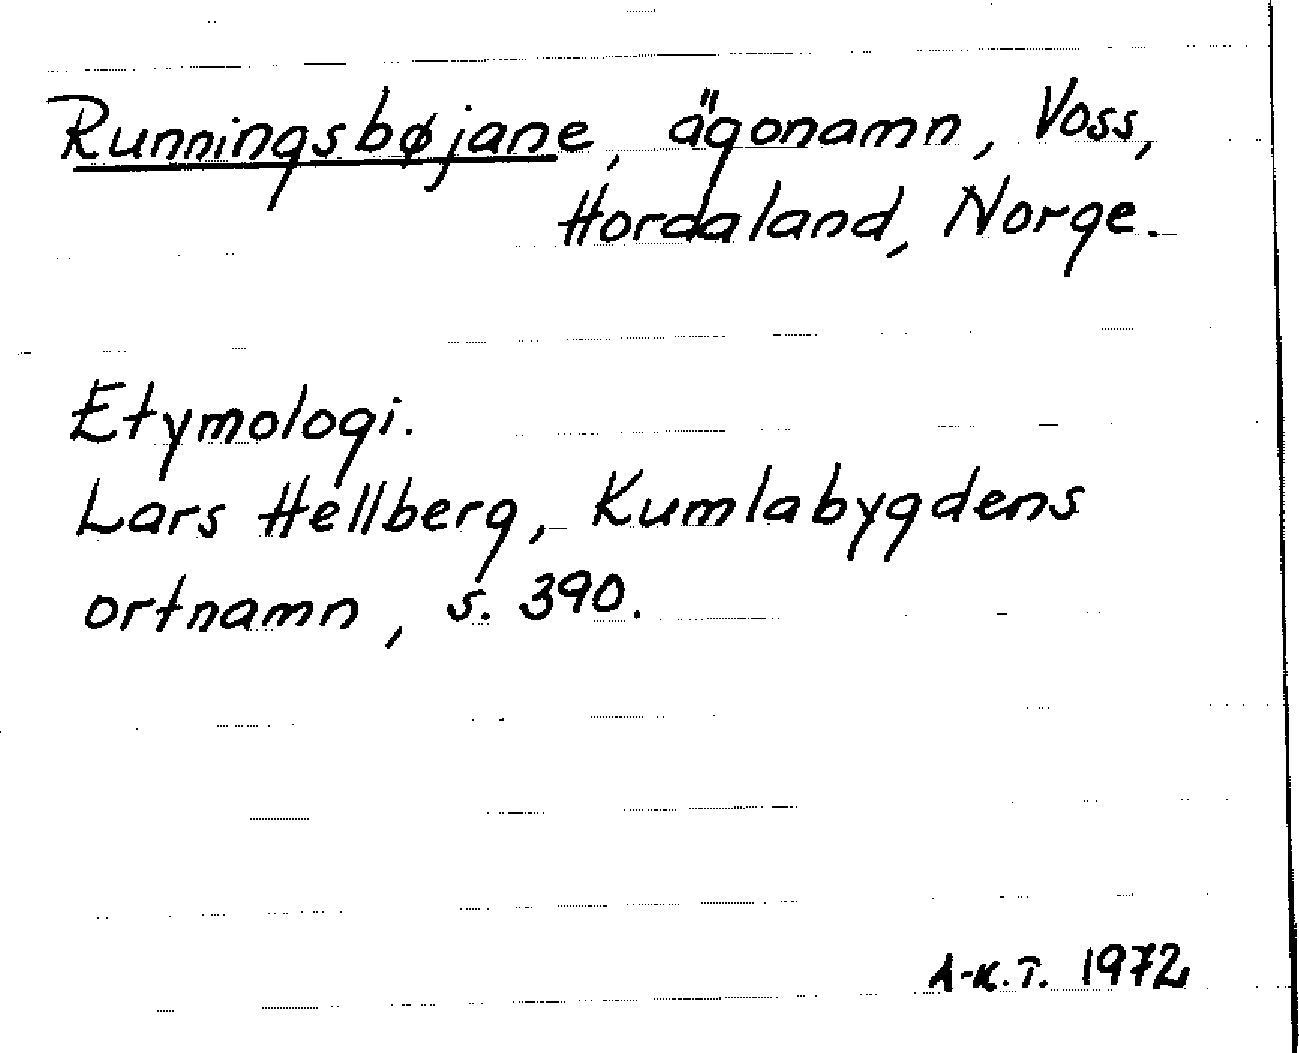 Runningsbøjane, ägonamn, Voss,
Hordaland, Norge.
Etymologi.
Lars Hellberg, Kumlabygdens
ortnamn, s. 390.
A-K.T. 1972